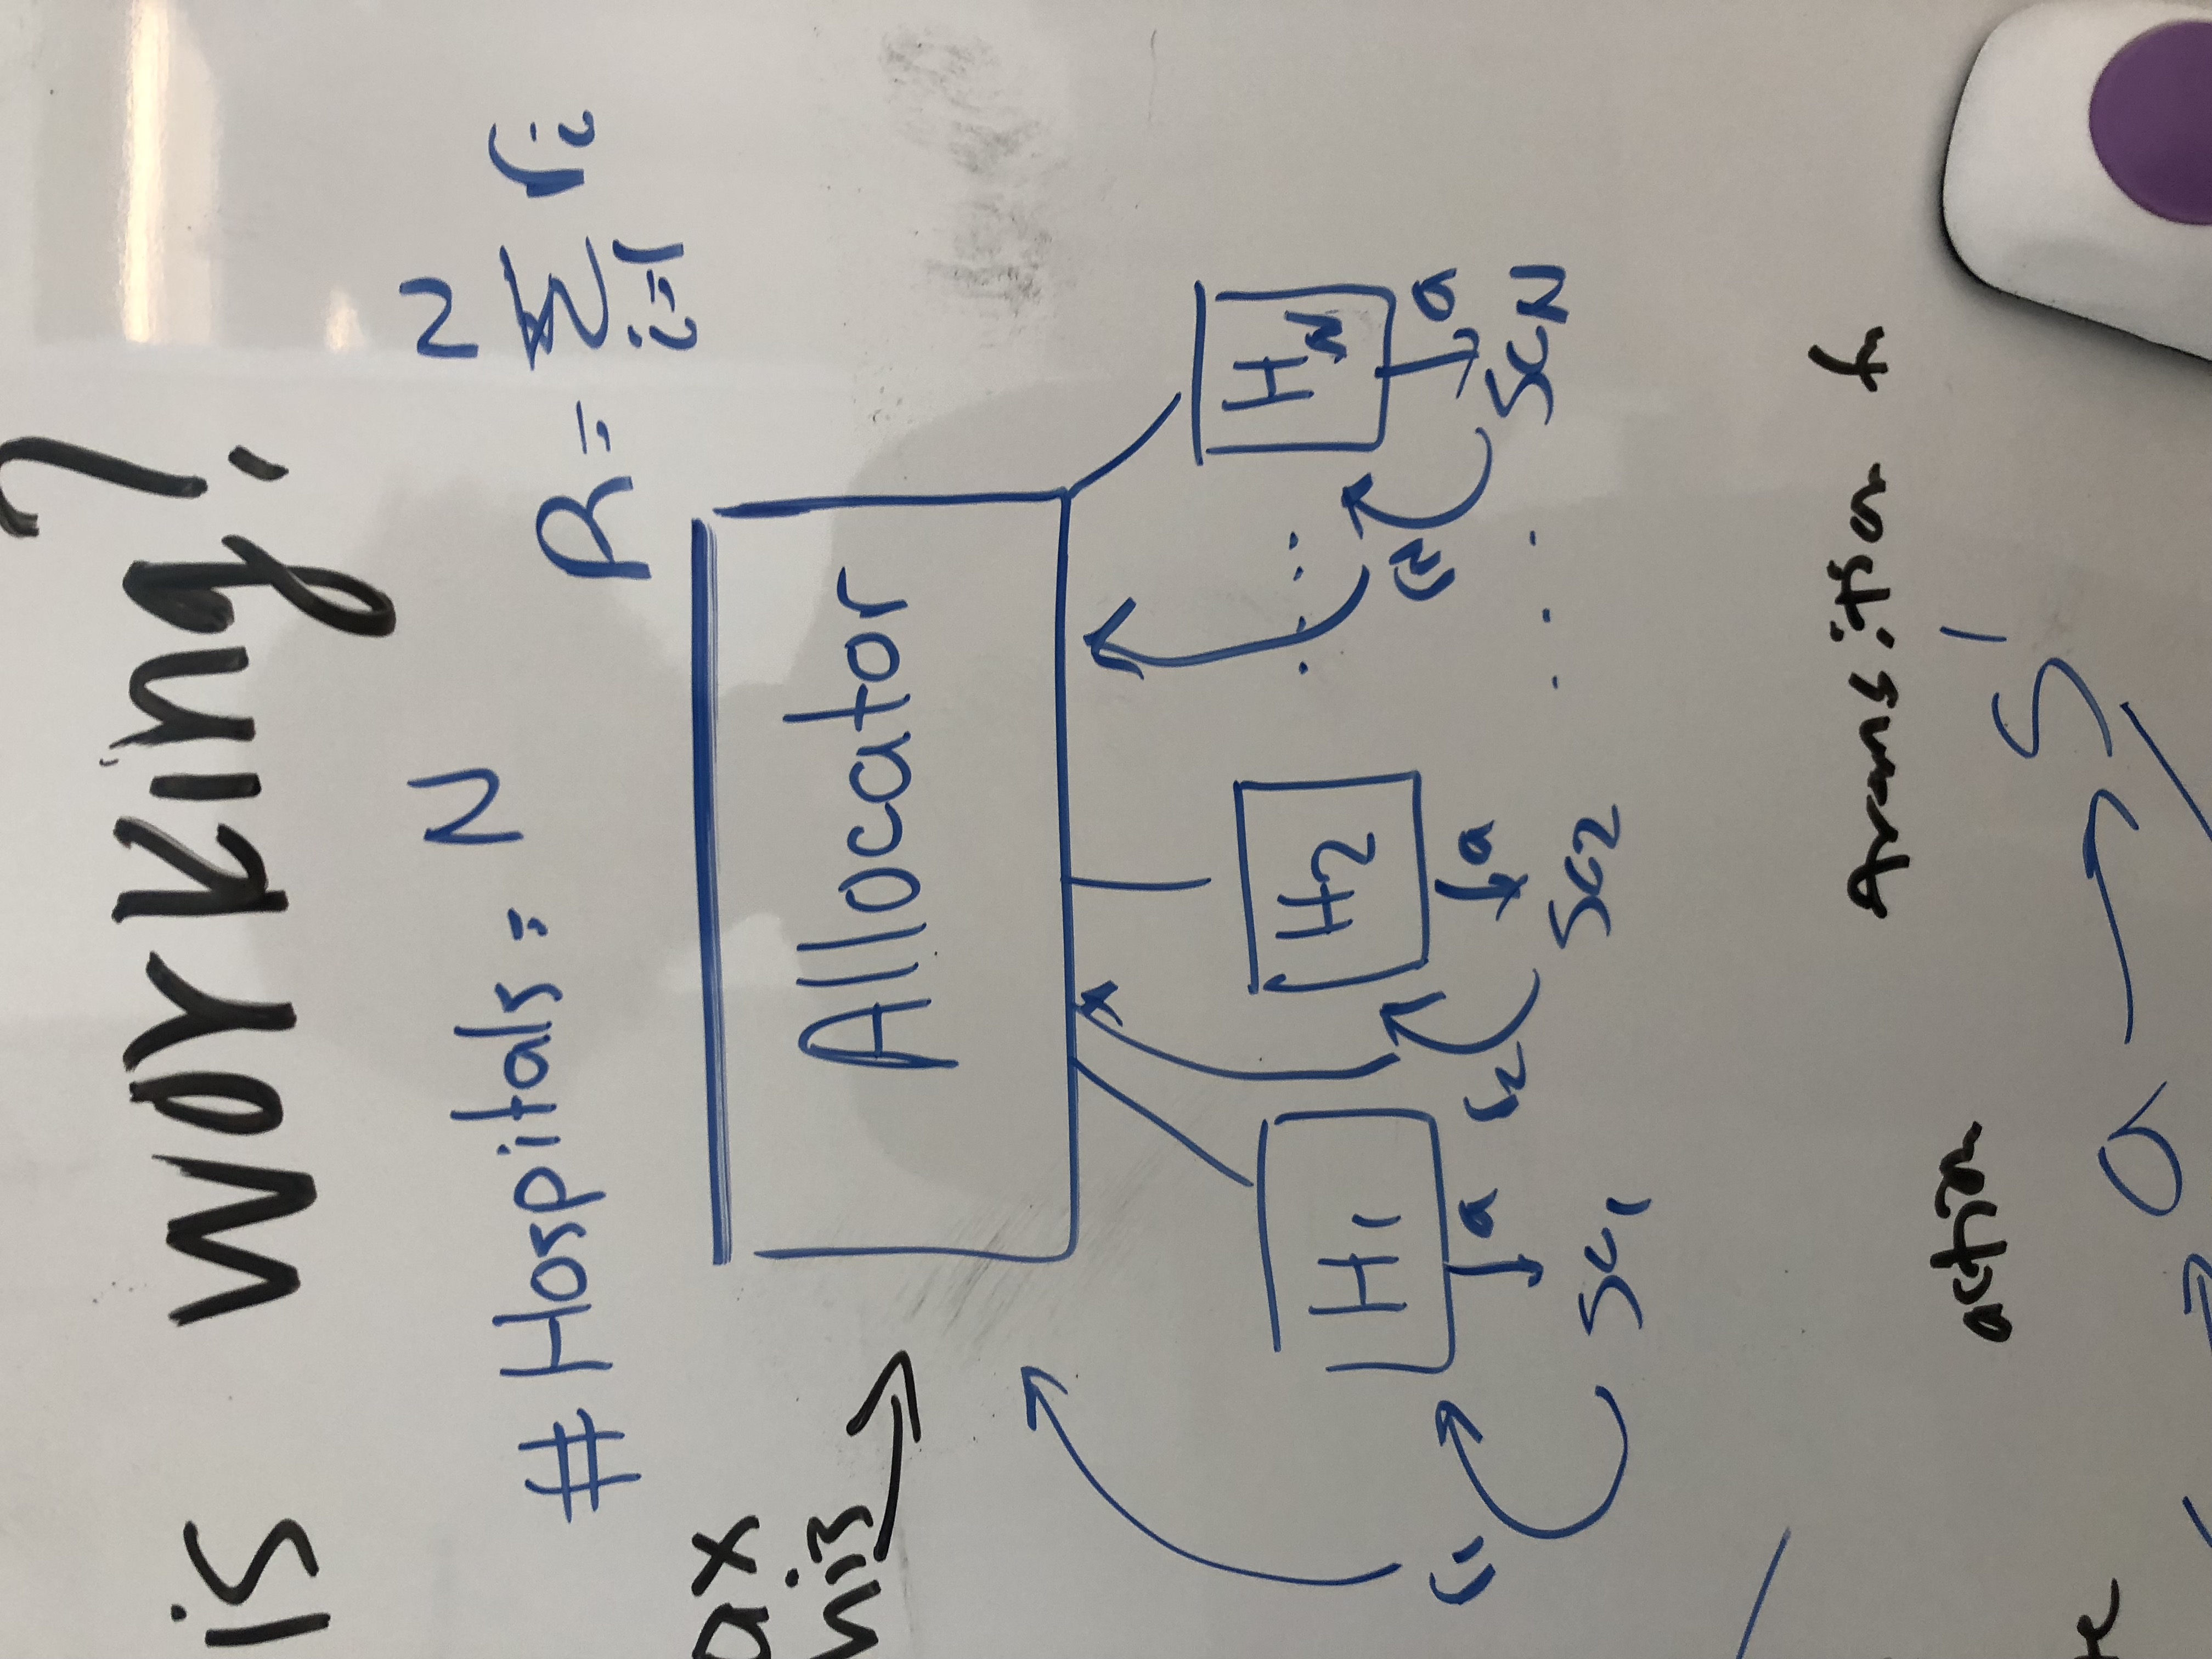 is working?
#Hospitals = N
R = N∑i=1 ri
ax
his
Allocator
H1 H2 ..... HN
r1 a r2 a rN a
SC1 SC2 ... SCN
transition fn
action
S'
a